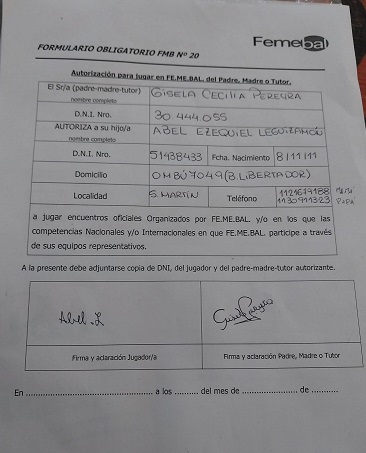 FORMULARIO OBLIGATORIO FMB Nº 20
Femebal
Autorización para jugar en FE.ME.BAL. del Padre, Madre o Tutor.
El Sr/a (padre-madre-tutor) GISELA CECILIA PEREYRA
nombre completo
D.N.I. Nro. 30.444.055
AUTORIZA a su hijo/a ABEL EZEQUIEL LEGUIZAMON
nombre completo
D.N.I. Nro. 51438433 Fcha. Nacimiento 8/11/11
Domicilio OMBÚ 7049 (B. LIBERTADOR)
Localidad S. MARTÍN Teléfono
a jugar encuentros oficiales Organizados por FE.ME.BAL. y/o en los que las
competencias Nacionales y/o Internacionales en que FE.ME.BAL. participe a través
de sus equipos representativos.
A la presente debe adjuntarse copia de DNI, del jugador y del padre-madre-tutor autorizante.
Abel.L
Firma y aclaración Jugador/a Firma y aclaración Padre, Madre o Tutor
En ................................................ a los ......... del mes de ..................... de ..........